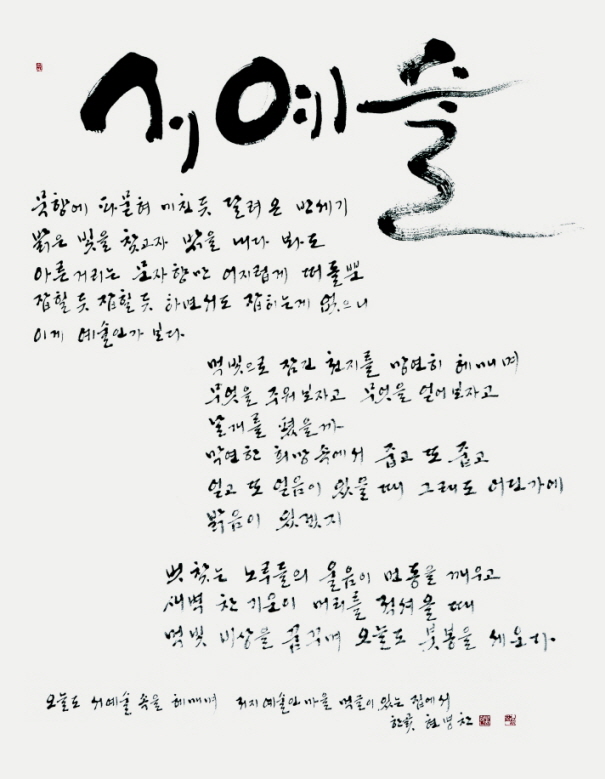 서예술
묵향에 파묻혀 미친듯 달려온 반세기
밝은 빛을 찾고자 밖을 내다 봐도
아른거리는 문자향만 어지럽게 떠돌뿐
잡힐듯 잡힐듯 하면서도 잡히는게 없으니
이게 예술인가 보다.
먹빛으로 잠긴 천지를 망연히 헤매며
무엇을 주워보자고 무엇을 얻어보자고
날개를 폈을까
막연한 희망속에서 줍고 또 줍고
얻고 또 얻음이 있을 때 그래도 어딘가에
밝음이 있겠지
벗찾는 노루들의 울음이 먼동을 깨우고
새벽 찬 기운이 머리를 적셔올 때
먹빛 비상을 꿈꾸며 오늘도 붓봉을 세운다.
오늘도 서예술 속을 헤매며 저지예술인마을 먹글이있는 집에서
현병찬